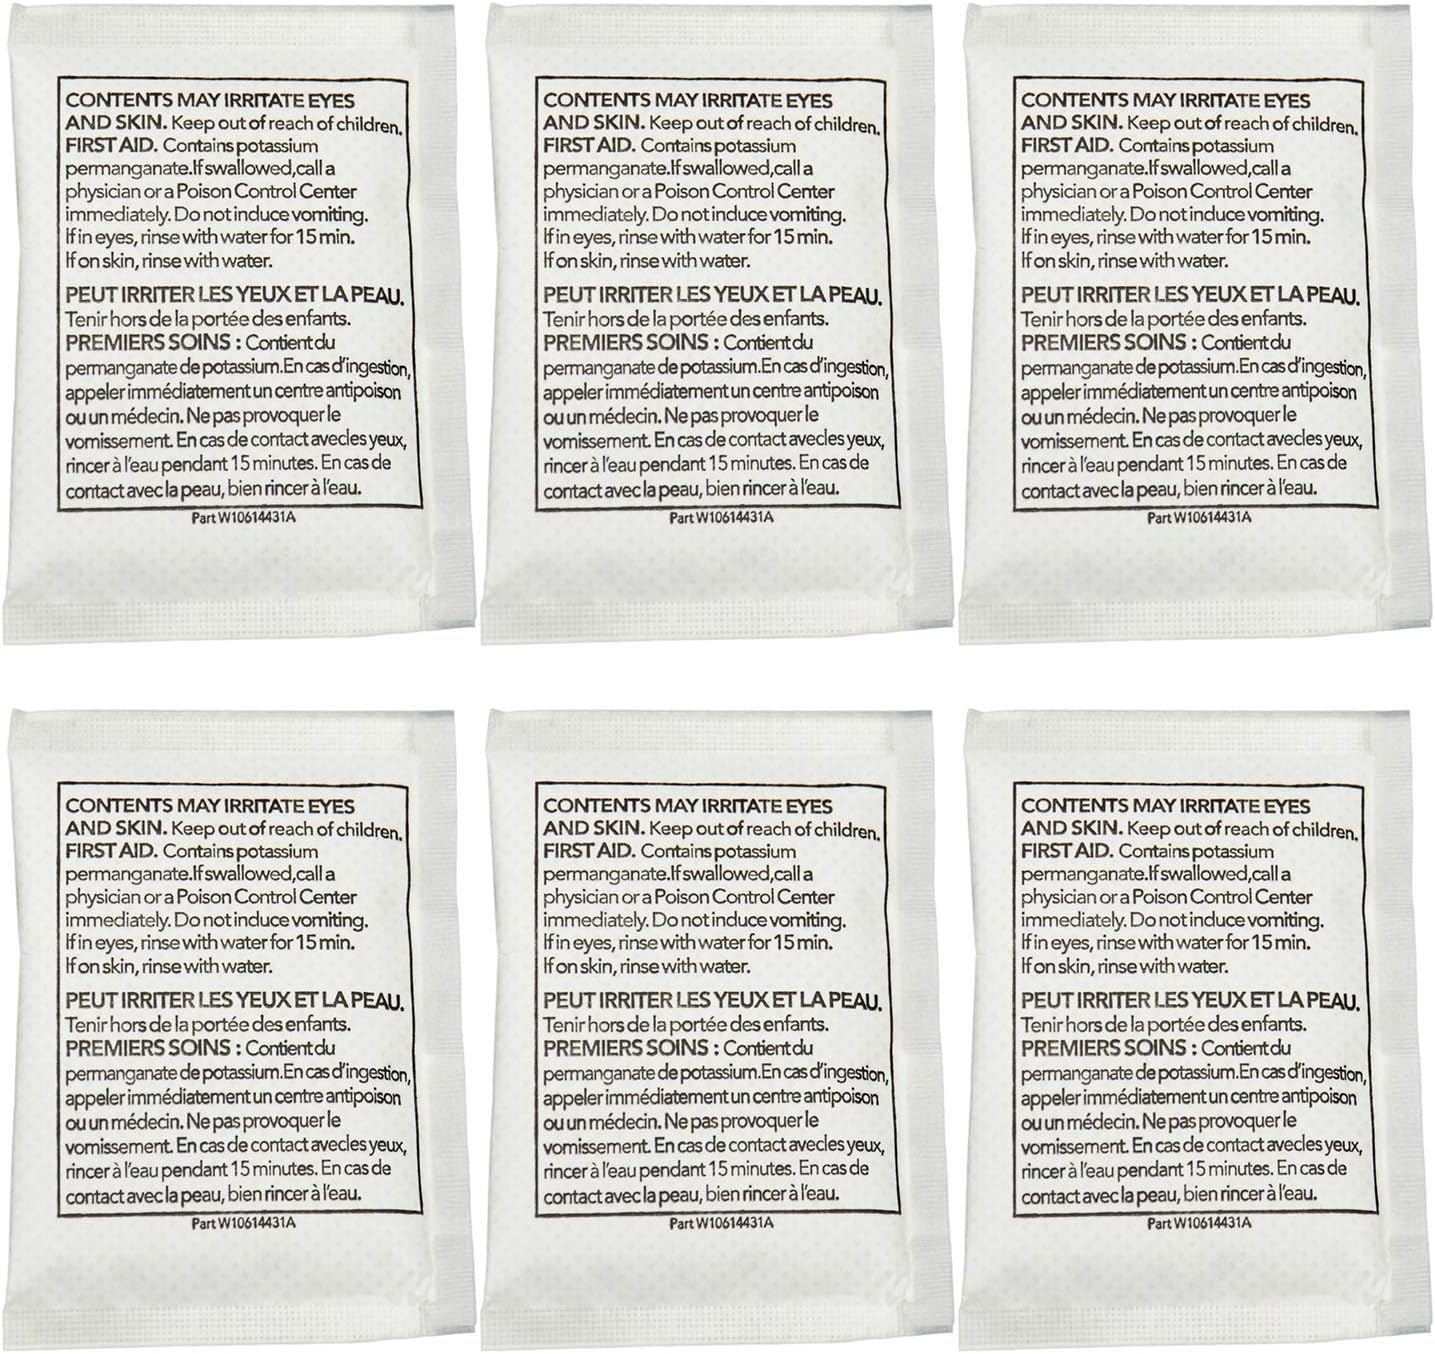 CONTENTS MAY IRRITATE EYES
AND SKIN. Keep out of reach of children.
FIRST AID. Contains potassium
permanganate. If swallowed, call a
physician or a Poison Control Center
immediately. Do not induce vomiting.
If in eyes, rinse with water for 15 min.
If on skin, rinse with water.
PEUT IRRITER LES YEUX ET LA PEAU.
Tenir hors de la portée des enfants.
PREMIERS SOINS : Contient du
permanganate de potassium. En cas d'ingestion,
appeler immédiatement un centre antipoison
ou un médecin. Ne pas provoquer le
vomissement. En cas de contact avec les yeux,
rincer à l'eau pendant 15 minutes. En cas de
contact avec la peau, bien rincer à l'eau.
Part W10614431A
CONTENTS MAY IRRITATE EYES
AND SKIN. Keep out of reach of children.
FIRST AID. Contains potassium
permanganate. If swallowed, call a
physician or a Poison Control Center
immediately. Do not induce vomiting.
If in eyes, rinse with water for 15 min.
If on skin, rinse with water.
PEUT IRRITER LES YEUX ET LA PEAU.
Tenir hors de la portée des enfants.
PREMIERS SOINS : Contient du
permanganate de potassium. En cas d'ingestion,
appeler immédiatement un centre antipoison
ou un médecin. Ne pas provoquer le
vomissement. En cas de contact avec les yeux,
rincer à l'eau pendant 15 minutes. En cas de
contact avec la peau, bien rincer à l'eau.
Part W10614431A
CONTENTS MAY IRRITATE EYES
AND SKIN. Keep out of reach of children.
FIRST AID. Contains potassium
permanganate. If swallowed, call a
physician or a Poison Control Center
immediately. Do not induce vomiting.
If in eyes, rinse with water for 15 min.
If on skin, rinse with water.
PEUT IRRITER LES YEUX ET LA PEAU.
Tenir hors de la portée des enfants.
PREMIERS SOINS : Contient du
permanganate de potassium. En cas d'ingestion,
appeler immédiatement un centre antipoison
ou un médecin. Ne pas provoquer le
vomissement. En cas de contact avec les yeux,
rincer à l'eau pendant 15 minutes. En cas de
contact avec la peau, bien rincer à l'eau.
Part W10614431A
CONTENTS MAY IRRITATE EYES
AND SKIN. Keep out of reach of children.
FIRST AID. Contains potassium
permanganate. If swallowed, call a
physician or a Poison Control Center
immediately. Do not induce vomiting.
If in eyes, rinse with water for 15 min.
If on skin, rinse with water.
PEUT IRRITER LES YEUX ET LA PEAU.
Tenir hors de la portée des enfants.
PREMIERS SOINS : Contient du
permanganate de potassium. En cas d'ingestion,
appeler immédiatement un centre antipoison
ou un médecin. Ne pas provoquer le
vomissement. En cas de contact avec les yeux,
rincer à l'eau pendant 15 minutes. En cas de
contact avec la peau, bien rincer à l'eau.
Part W10614431A
CONTENTS MAY IRRITATE EYES
AND SKIN. Keep out of reach of children.
FIRST AID. Contains potassium
permanganate. If swallowed, call a
physician or a Poison Control Center
immediately. Do not induce vomiting.
If in eyes, rinse with water for 15 min.
If on skin, rinse with water.
PEUT IRRITER LES YEUX ET LA PEAU.
Tenir hors de la portée des enfants.
PREMIERS SOINS : Contient du
permanganate de potassium. En cas d'ingestion,
appeler immédiatement un centre antipoison
ou un médecin. Ne pas provoquer le
vomissement. En cas de contact avec les yeux,
rincer à l'eau pendant 15 minutes. En cas de
contact avec la peau, bien rincer à l'eau.
Part W10614431A
CONTENTS MAY IRRITATE EYES
AND SKIN. Keep out of reach of children.
FIRST AID. Contains potassium
permanganate. If swallowed, call a
physician or a Poison Control Center
immediately. Do not induce vomiting.
If in eyes, rinse with water for 15 min.
If on skin, rinse with water.
PEUT IRRITER LES YEUX ET LA PEAU.
Tenir hors de la portée des enfants.
PREMIERS SOINS : Contient du
permanganate de potassium. En cas d'ingestion,
appeler immédiatement un centre antipoison
ou un médecin. Ne pas provoquer le
vomissement. En cas de contact avec les yeux,
rincer à l'eau pendant 15 minutes. En cas de
contact avec la peau, bien rincer à l'eau.
Part W10614431A